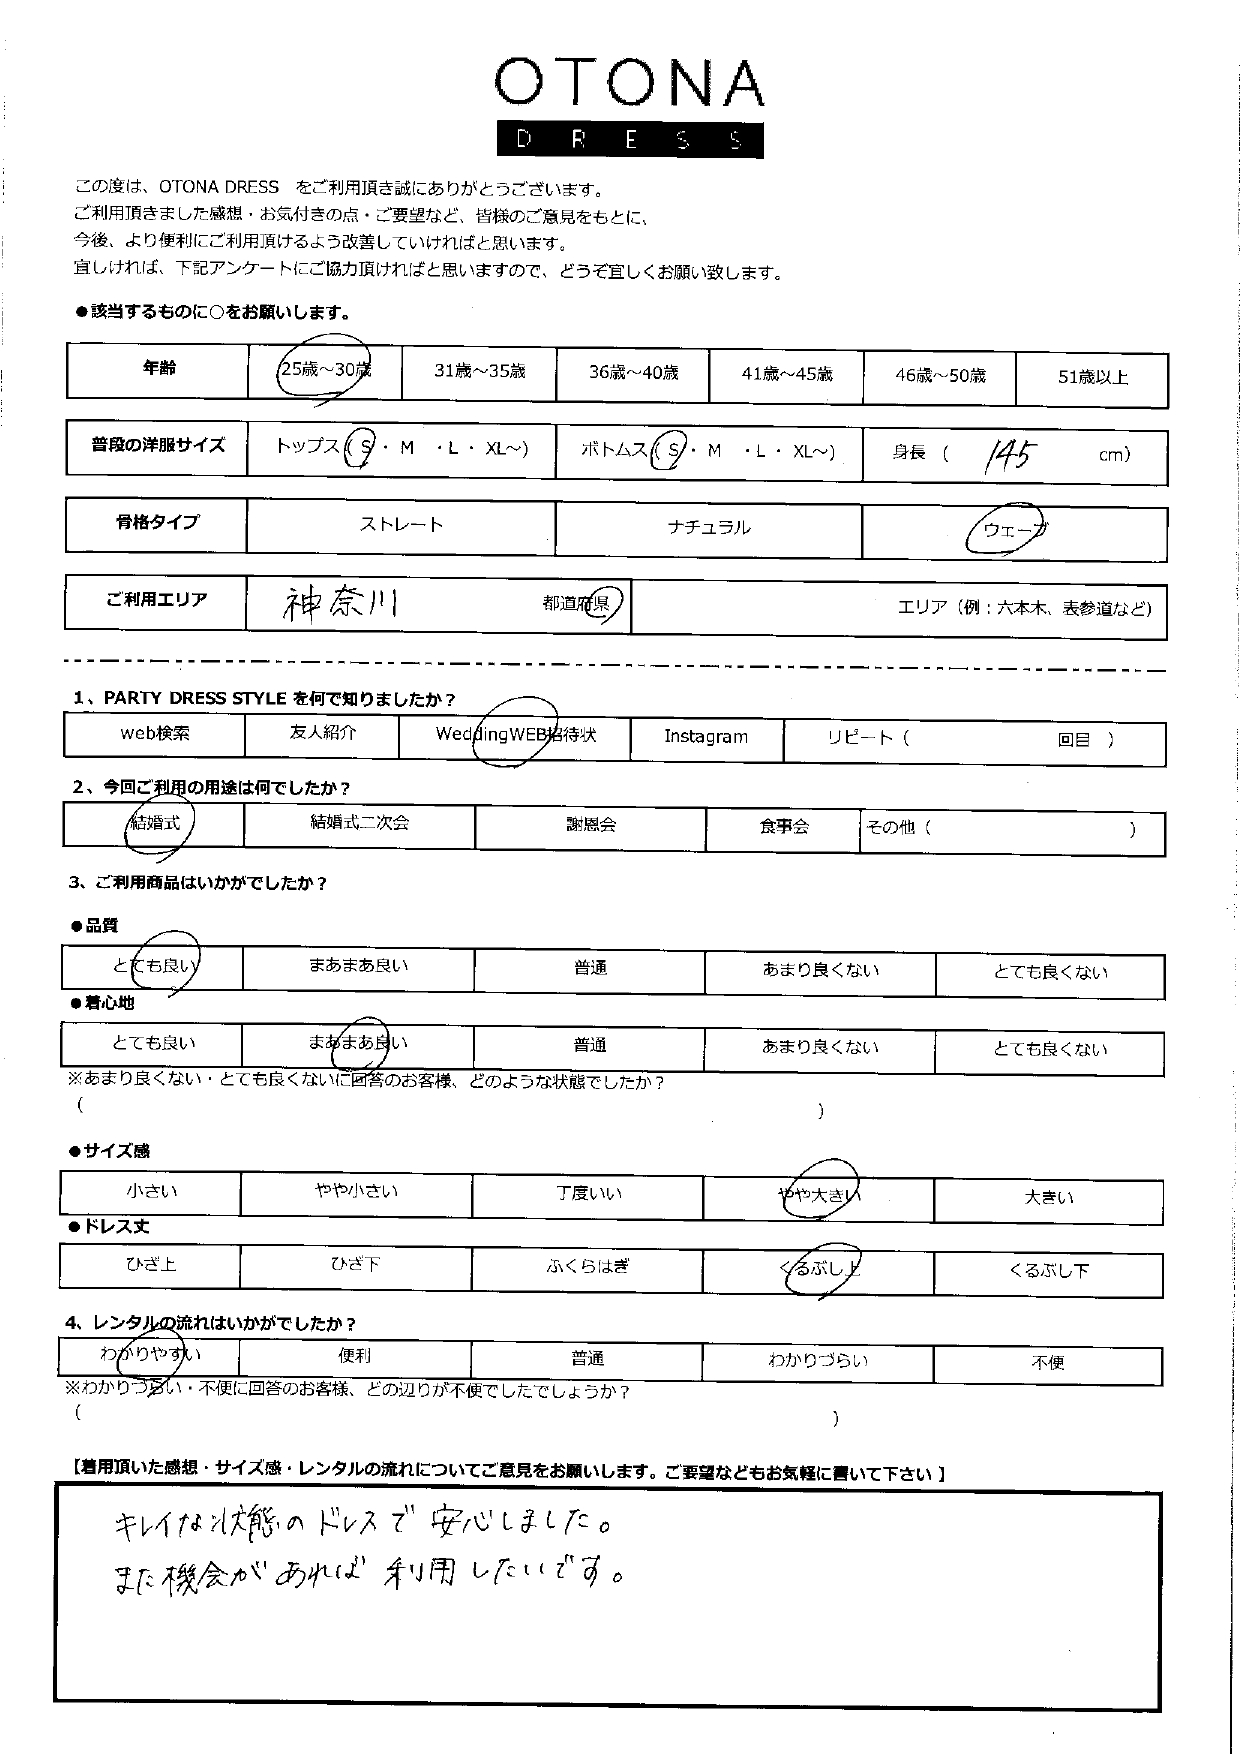 OTONA
DRESS
この度は、OTONA DRESS をご利用頂き誠にありがとうございます。
ご利用頂きました感想・お気付きの点・ご要望など、皆様のご意見をもとに、
今後、より便利にご利用頂けるよう改善していければと思います。
宜しければ、下記アンケートにご協力頂ければと思いますので、どうぞ宜しくお願い致します。
●該当するものに○をお願いします。
年齢 25歳～30歳 31歳～35歳 36歳～40歳 41歳～45歳 46歳～50歳 51歳以上
普段の洋服サイズ トップス( S ・ M ・L ・ XL～) ボトムス( S ・ M ・L ・ XL～) 身長 ( 145 cm)
骨格タイプ ストレート ナチュラル ウェーブ
ご利用エリア 神奈川 都道府県 エリア（例：六本木、表参道など）
1、PARTY DRESS STYLE を何で知りましたか？
web検索 友人紹介 WeddingWEB招待状 Instagram リピート（ 回目 ）
2、今回ご利用の用途は何でしたか？
結婚式 結婚式二次会 謝恩会 食事会 その他（ ）
3、ご利用商品はいかがでしたか？
●品質
とても良い まあまあ良い 普通 あまり良くない とても良くない
●着心地
とても良い まあまあ良い 普通 あまり良くない とても良くない
※あまり良くない・とても良くないに回答のお客様、どのような状態でしたか？
( )
●サイズ感
小さい やや小さい 丁度いい やや大きい 大きい
●ドレス丈
ひざ上 ひざ下 ふくらはぎ くるぶし上 くるぶし下
4、レンタルの流れはいかがでしたか？
わかりやすい 便利 普通 わかりづらい 不便
※わかりづらい・不便に回答のお客様、どの辺りが不便でしたでしょうか？
( )
【着用頂いた感想・サイズ感・レンタルの流れについてご意見をお願いします。ご要望などもお気軽に書いて下さい 】
キレイな状態のドレスで安心しました。
また機会があれば利用したいです。